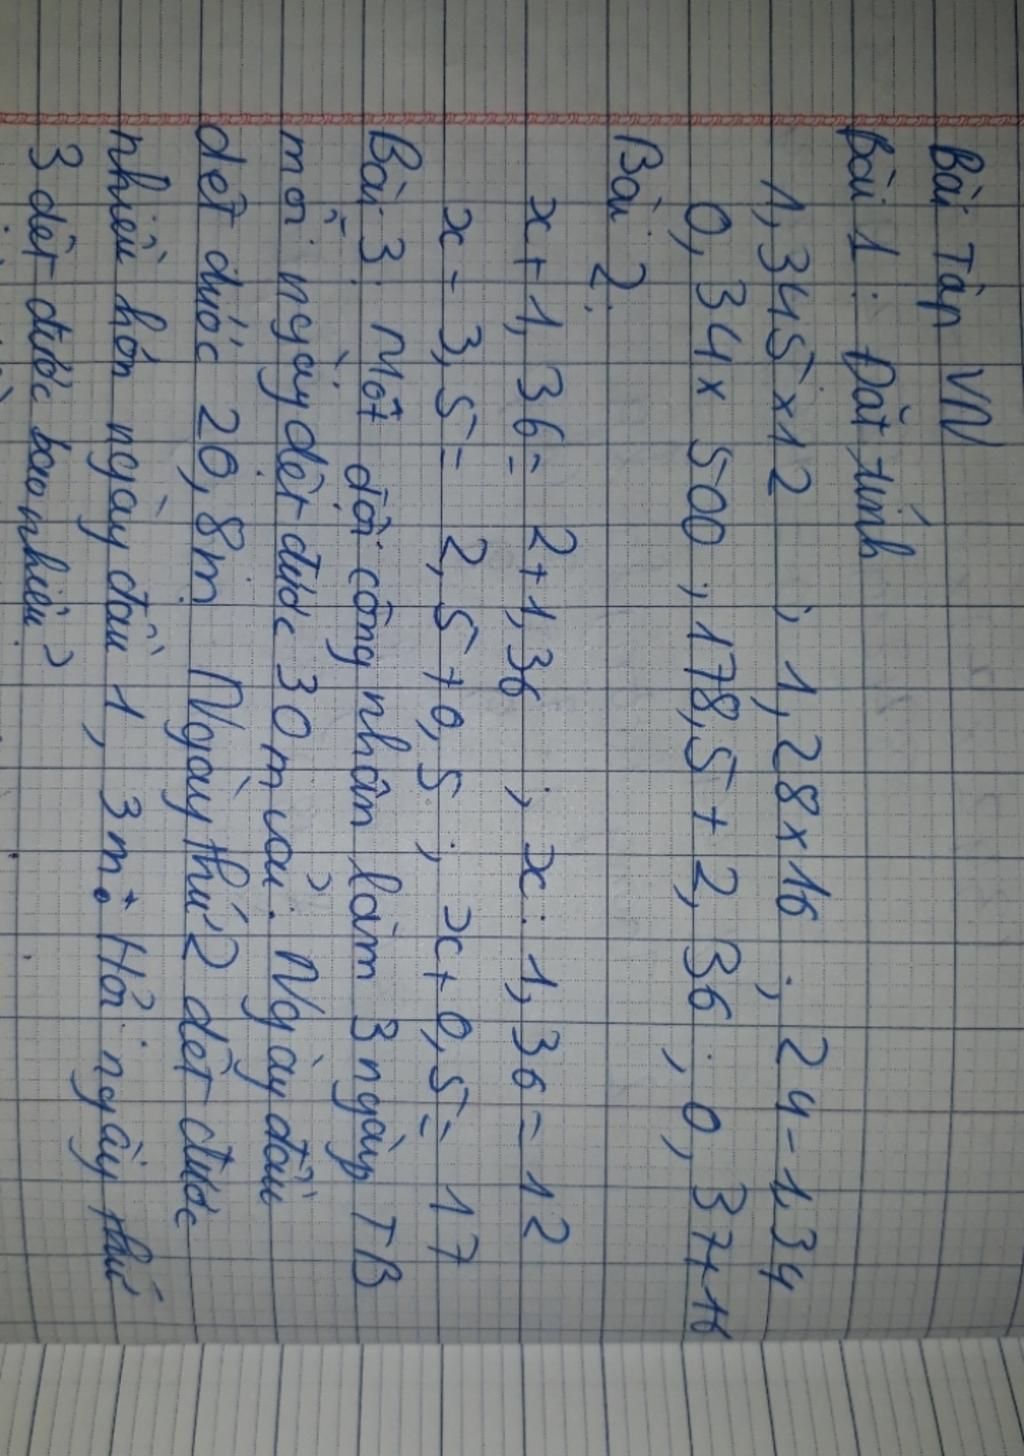 Bài Tập VN
Bài 1: Đặt tính
1,345 x 12 ; 1,28 x 16 ; 24 - 1,34
0,34 x 500 ; 178,5 + 2,36 ; 0,37 + 16
Bài 2:
x + 1,36 = 2 + 1,36 ; x : 1,36 = 12
x - 3,5 = 2,5 + 0,5 ; x + 0,5 = 17
Bài 3: Một đội công nhân làm 3 ngày TB
mỗi ngày dệt được 30 m vải. Ngày đầu
dệt được 20,8m Ngày thứ 2 dệt được
nhiều hơn ngày đầu 1,3 m. Hỏi ngày thứ
3 dệt được bao nhiêu?